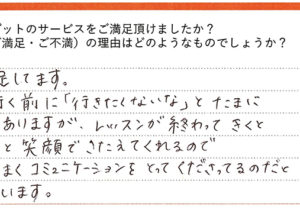 ゾットのサービスをご満足頂けましたか？
満足・ご不満）の理由はどのようなものでしょうか？
足してます。
く前に「行きたくないな」とたまに
ありますが、レッスンが終わってきくと
と笑顔でこたえてくれるので
まくコミュニケーションをとってくださってるのだと
います。